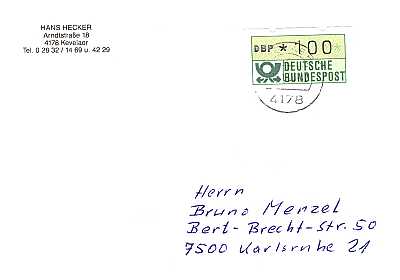 HANS HECKER
Arndtstraße 18
4178 Kevelaer
Tel. 0 28 32 / 14 69 u. 42 29
DBP * 100 *
DEUTSCHE
BUNDESPOST
4178
Herrn
Bruno Menzel
Bert-Brecht-Str. 50
7500 Karlsruhe 21